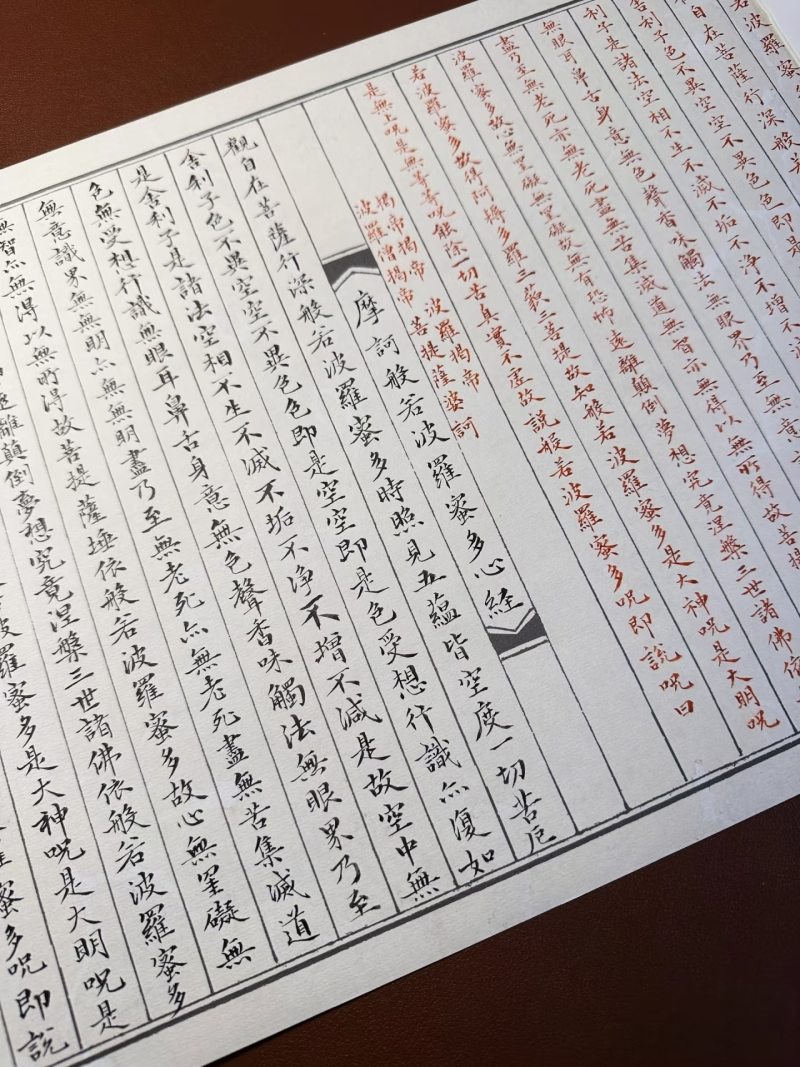 若波羅蜜
自在菩薩行深般若
舍利子色不異空空不異色色即是
利子是諸法空相不生不滅不垢不淨不增不減
無眼耳鼻舌身意無色聲香味觸法無眼界乃至無意
盡乃至無老死亦無老死盡無苦集滅道無智亦無得以無所得故菩提
波羅蜜多故心無罣礙無罣礙故無有恐怖遠離顛倒夢想究竟涅槃三世諸佛依
若波羅蜜多故得阿耨多羅三藐三菩提故知般若波羅蜜多是大神呪是大明呪
是無上呪是無等等呪能除一切苦真實不虛故說般若波羅蜜多呪即說呪曰
揭帝揭帝 波羅揭帝
波羅僧揭帝 菩提薩婆訶
摩訶般若波羅蜜多心経
觀自在菩薩行深般若波羅蜜多時照見五蘊皆空度一切苦厄
舍利子色不異空空不異色色即是空空即是色受想行識亦復如
是舍利子是諸法空相不生不滅不垢不淨不增不減是故空中無
色無受想行識無眼耳鼻舌身意無色聲香味觸法無眼界乃至
無意識界無無明亦無無明盡乃至無老死亦無老死盡無苦集滅道
無智亦無得以無所得故菩提薩埵依般若波羅蜜多故心無罣礙無
遠離顛倒夢想究竟涅槃三世諸佛依般若波羅蜜多
波羅蜜多是大神呪是大明呪是
羅蜜多呪即說